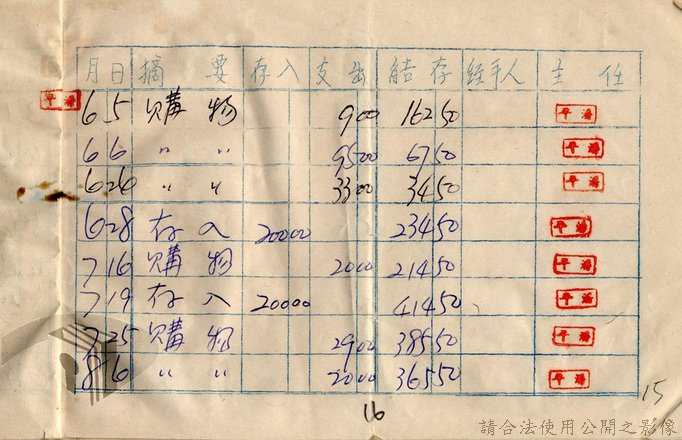 月 日 摘 要 存入 支出 結存 經手人 主 任
6 5 購 物 900 16250
6 6 〃 〃 9500 6750
6 26 〃 〃 3300 3450
6 28 存 入 20000 23450
7 16 購 物 2000 21450
7 19 存 入 20000 41450
7 25 購 物 2900 38550
8 6 〃 〃 2000 36550
16
15
請合法使用公開之影像